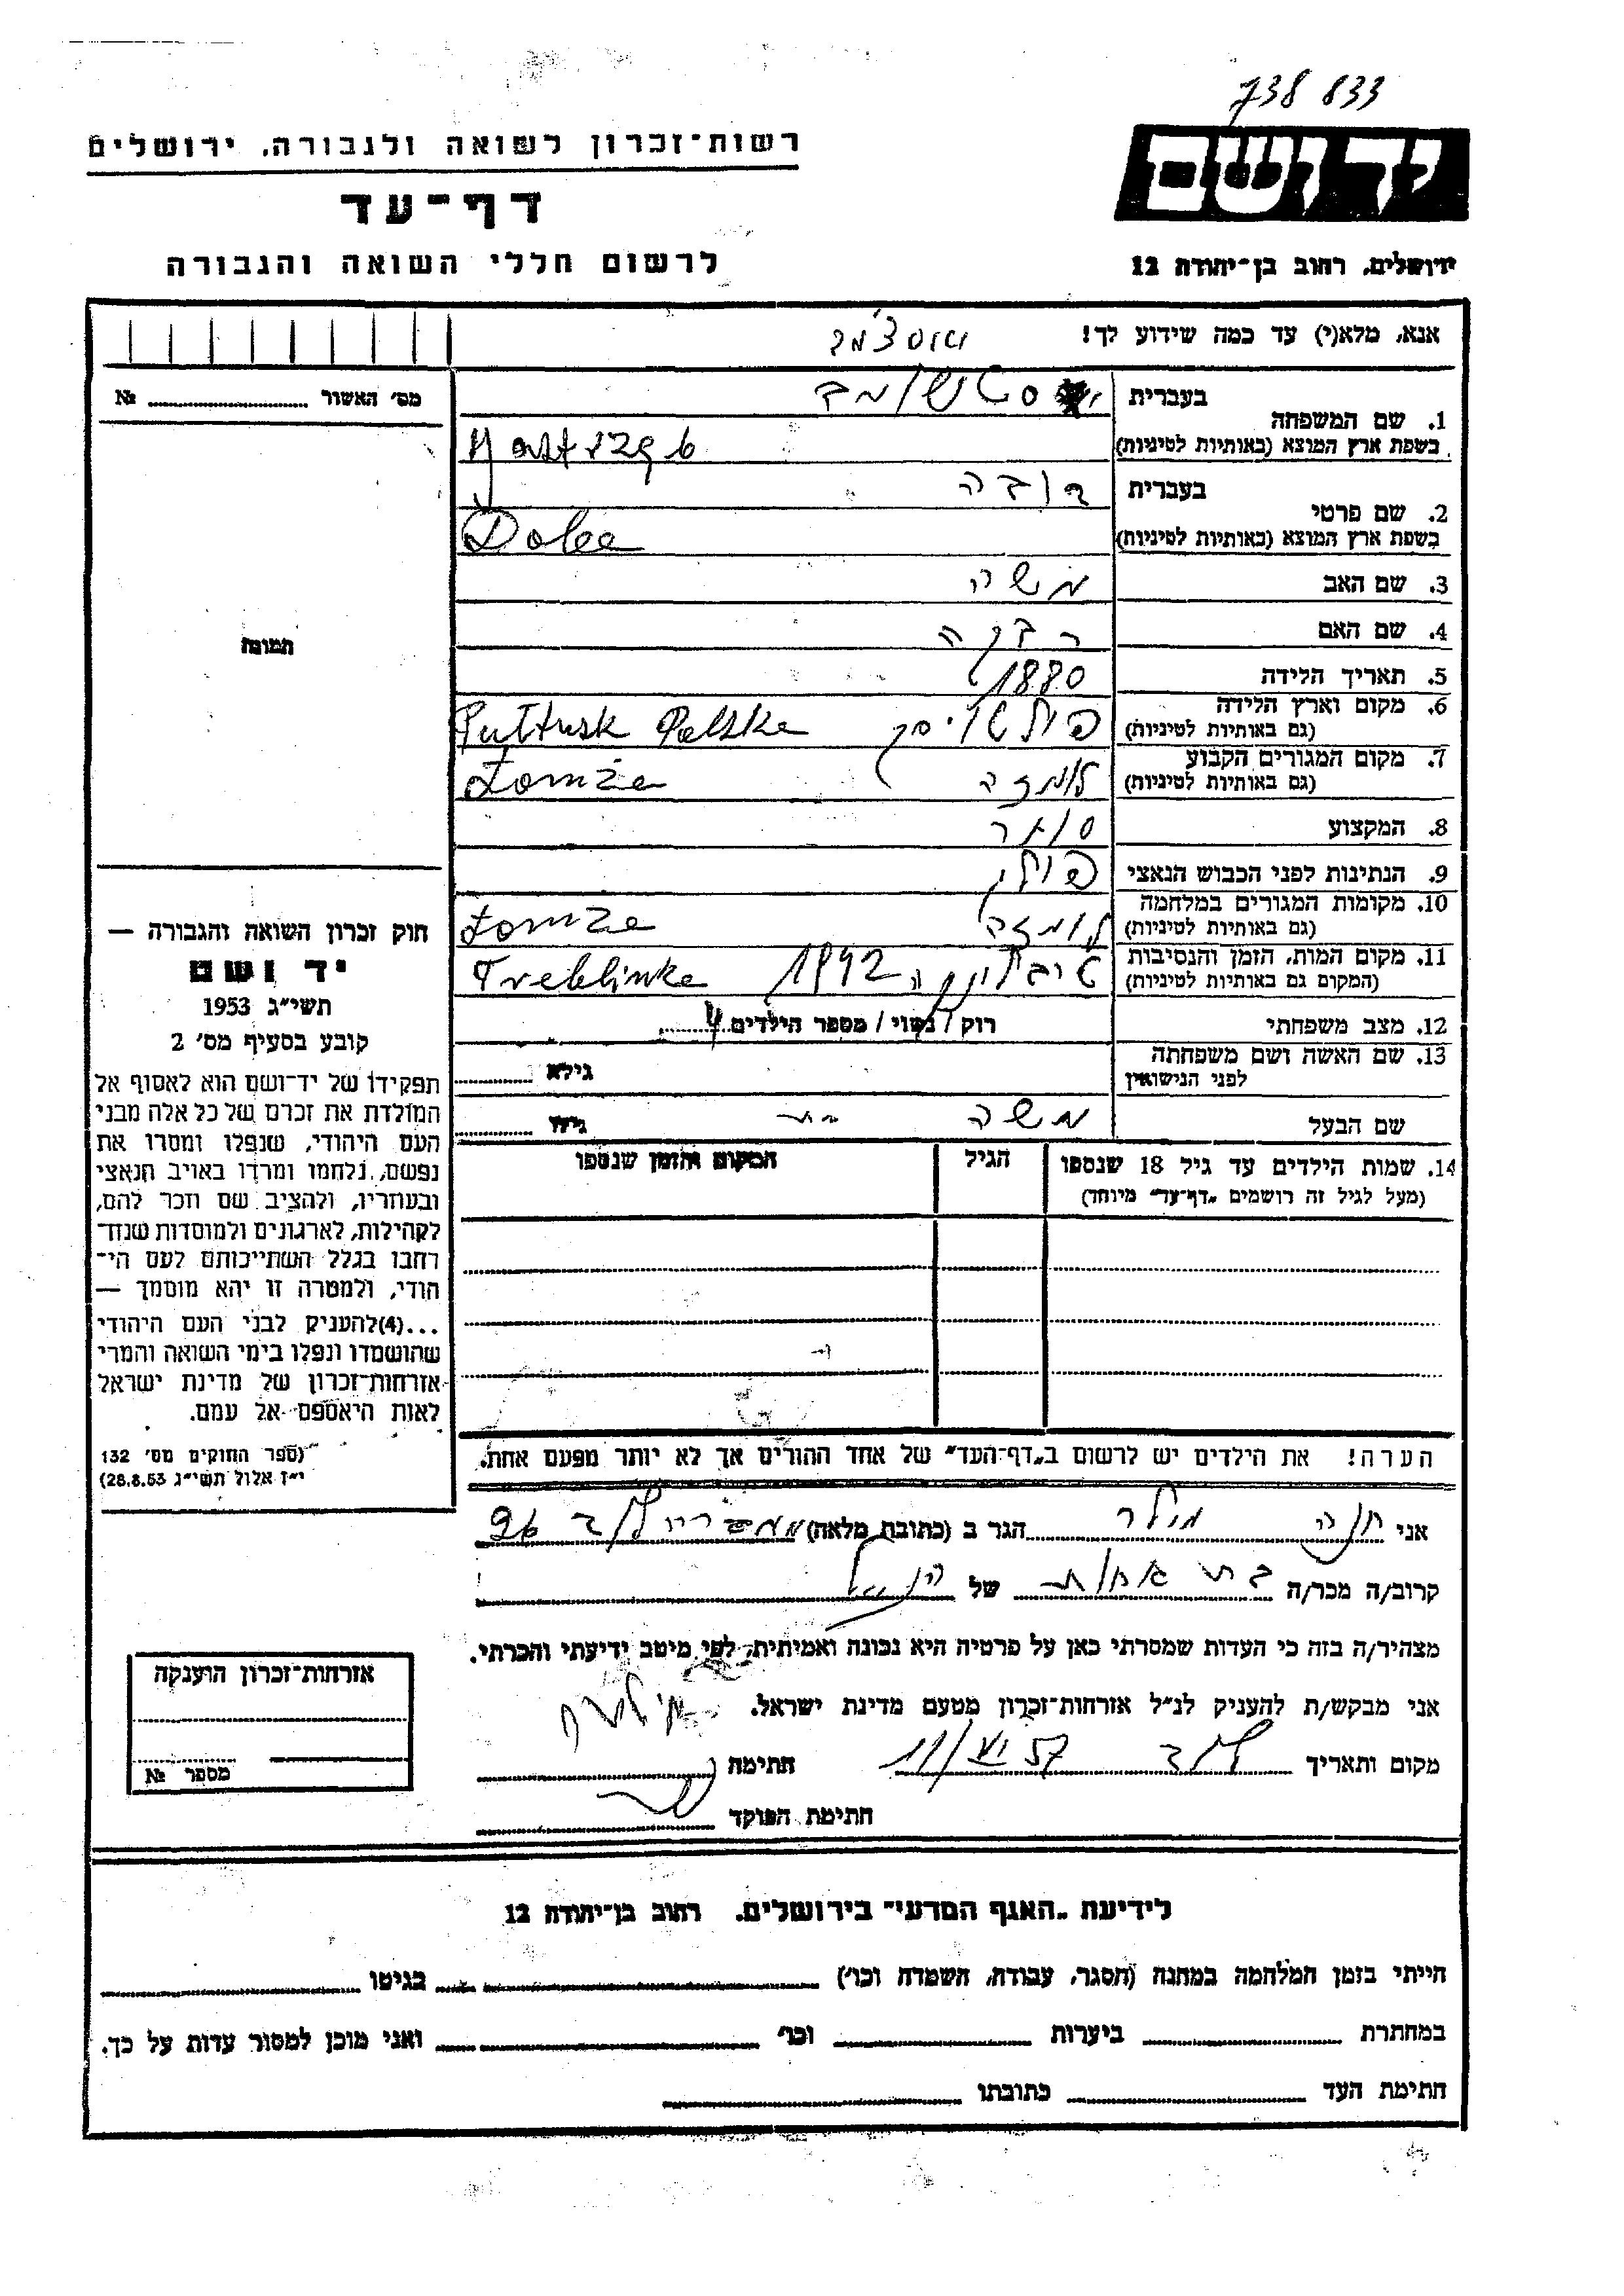 738 833
יד ושם
רשות-זכרון לשואה ולגבורה, ירושלים
דף-עד
לרשום חללי השואה והגבורה
ירושלים, רחוב בן-יהודה 12
אנא, מלא(י) עד כמה שידוע לך!
מס' האשור № 
1. שם המשפחה
בעברית
בשפת ארץ המוצא (באותיות לטיניות)
2. שם פרטי
בעברית
בשפת ארץ המוצא (באותיות לטיניות)
3. שם האב משה
4. שם האם רבקה
5. תאריך הלידה 1880
6. מקום וארץ הלידה
(גם באותיות לטיניות)
Pułtusk Polska
7. מקום המגורים הקבוע לומזה
(גם באותיות לטיניות) Łomża
8. המקצוע סוחר
9. הנתינות לפני הכבוש הנאצי פולין
10. מקומות המגורים במלחמה לומזה
(גם באותיות לטיניות) Łomża
11. מקום המות, הזמן והנסיבות טרבלינקה 1942
(המקום גם באותיות לטיניות) Treblinka
12. מצב משפחתי רוק / נשוי / מספר הילדים 4
13. שם האשה ושם משפחתה
לפני הנישואין
גילא
שם הבעל משה
גילו
תמונה
14. שמות הילדים עד גיל 18 שנספו
(מעל לגיל זה רושמים „דף-עד" מיוחד)
הגיל
המקום והזמן שנספו
הערה! את הילדים יש לרשום ב„דף-העד" של אחד ההורים אך לא יותר מפעם אחת.
חוק זכרון השואה והגבורה —
יד ושם
תשי"ג 1953
קובע בסעיף מס' 2
תפקידו של יד-ושם הוא לאסוף אל
המולדת את זכרם של כל אלה מבני
העם היהודי, שנפלו ומסרו את
נפשם, נלחמו ומרדו באויב הנאצי
ובעוזריו, ולהציב שם וזכר להם,
לקהילות, לארגונים ולמוסדות שנח-
רבו בגלל השתייכותם לעם הי-
הודי, ולמטרה זו יהא מוסמך —
...(4)להעניק לבני העם היהודי
שהושמדו ונפלו בימי השואה והמרי
אזרחות-זכרון של מדינת ישראל
לאות היאספם אל עמם.
(ספר החוקים מס' 132
י"ז אלול תשי"ג 28.8.53)
אני חנה מילר הגר ב (כתובת מלאה)
קרוב/ה מכר/ה בת אחות של הנ"ל
מצהיר/ה בזה כי העדות שמסרתי כאן על פרטיה היא נכונה ואמיתית, לפי מיטב ידיעתי והכרתי.
אני מבקש/ת להעניק לנ"ל אזרחות-זכרון מטעם מדינת ישראל.
מקום ותאריך לוד 11/VI 57 חתימה
חתימת הפוקד
אזרחות-זכרון הוענקה
מספר №
לידיעת „האגף המדעי" בירושלים. רחוב בן-יהודה 12
הייתי בזמן המלחמה במחנה (הסגר, עבודה, השמדה וכו') בגיטו
במחתרת ביערות וכו' ואני מוכן למסור עדות על כך.
חתימת העד כתובתו